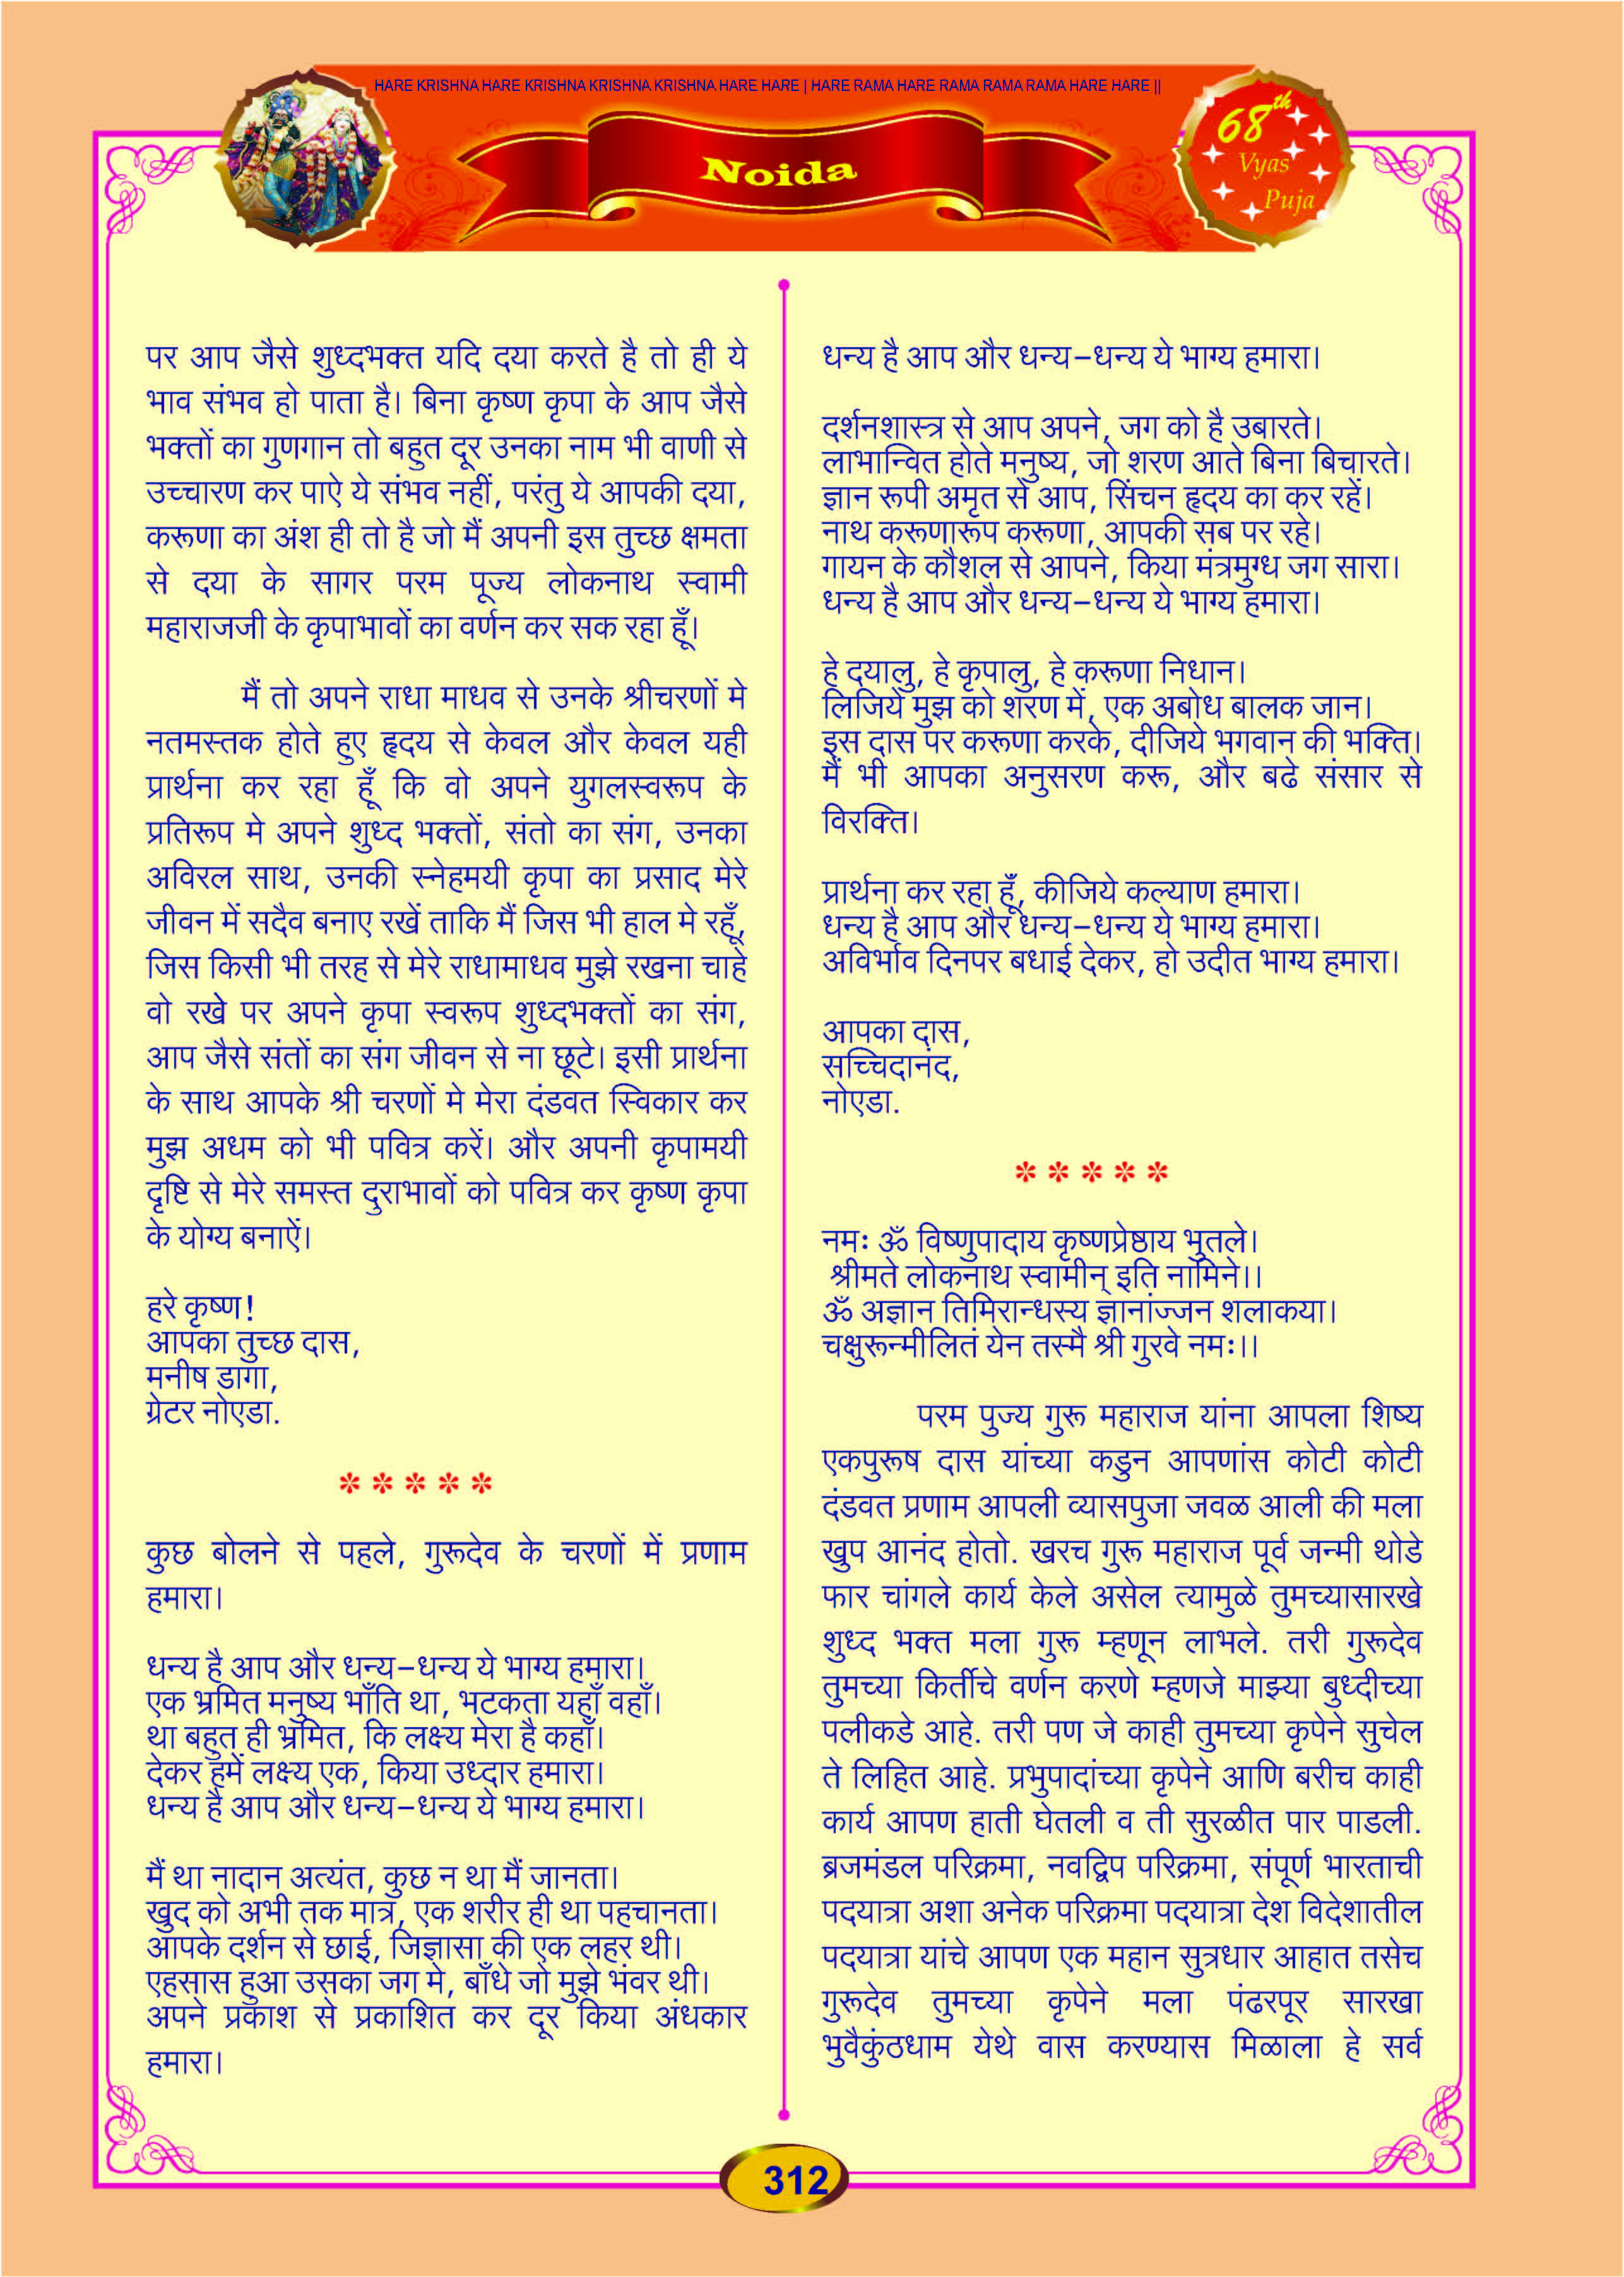 HARE KRISHNA HARE KRISHNA KRISHNA KRISHNA HARE HARE | HARE RAMA HARE RAMA RAMA RAMA HARE HARE ||
Noida
68th
Vyas
Puja
पर आप जैसे शुध्दभक्त यदि दया करते है तो ही ये
भाव संभव हो पाता है। बिना कृष्ण कृपा के आप जैसे
भक्तों का गुणगान तो बहुत दूर उनका नाम भी वाणी से
उच्चारण कर पाऐ ये संभव नहीं, परंतु ये आपकी दया,
करूणा का अंश ही तो है जो मैं अपनी इस तुच्छ क्षमता
से दया के सागर परम पूज्य लोकनाथ स्वामी
महाराजजी के कृपाभावों का वर्णन कर सक रहा हूँ।
मैं तो अपने राधा माधव से उनके श्रीचरणों मे
नतमस्तक होते हुए हृदय से केवल और केवल यही
प्रार्थना कर रहा हूँ कि वो अपने युगलस्वरूप के
प्रतिरूप मे अपने शुध्द भक्तों, संतो का संग, उनका
अविरल साथ, उनकी स्नेहमयी कृपा का प्रसाद मेरे
जीवन में सदैव बनाए रखें ताकि मैं जिस भी हाल मे रहूँ,
जिस किसी भी तरह से मेरे राधामाधव मुझे रखना चाहे
वो रखे पर अपने कृपा स्वरूप शुध्दभक्तों का संग,
आप जैसे संतों का संग जीवन से ना छूटे। इसी प्रार्थना
के साथ आपके श्री चरणों मे मेरा दंडवत स्विकार कर
मुझ अधम को भी पवित्र करें। और अपनी कृपामयी
दृष्टि से मेरे समस्त दुराभावों को पवित्र कर कृष्ण कृपा
के योग्य बनाऐं।
हरे कृष्ण!
आपका तुच्छ दास,
मनीष डागा,
ग्रेटर नोएडा.
* * * * *
कुछ बोलने से पहले, गुरूदेव के चरणों में प्रणाम
हमारा।
धन्य है आप और धन्य-धन्य ये भाग्य हमारा।
एक भ्रमित मनुष्य भाँति था, भटकता यहाँ वहाँ।
था बहुत ही भ्रमित, कि लक्ष्य मेरा है कहाँ।
देकर हमें लक्ष्य एक, किया उध्दार हमारा।
धन्य है आप और धन्य-धन्य ये भाग्य हमारा।
मैं था नादान अत्यंत, कुछ न था मैं जानता।
खुद को अभी तक मात्र, एक शरीर ही था पहचानता।
आपके दर्शन से छाई, जिज्ञासा की एक लहर थी।
एहसास हुआ उसका जग मे, बाँधे जो मुझे भंवर थी।
अपने प्रकाश से प्रकाशित कर दूर किया अंधकार
हमारा।
धन्य है आप और धन्य-धन्य ये भाग्य हमारा।
दर्शनशास्त्र से आप अपने, जग को है उबारते।
लाभान्वित होते मनुष्य, जो शरण आते बिना बिचारते।
ज्ञान रूपी अमृत से आप, सिंचन हृदय का कर रहें।
नाथ करूणारूप करूणा, आपकी सब पर रहे।
गायन के कौशल से आपने, किया मंत्रमुग्ध जग सारा।
धन्य है आप और धन्य-धन्य ये भाग्य हमारा।
हे दयालु, हे कृपालु, हे करूणा निधान।
लिजिये मुझ को शरण में, एक अबोध बालक जान।
इस दास पर करूणा करके, दीजिये भगवान की भक्ति।
मैं भी आपका अनुसरण करू, और बढे संसार से
विरक्ति।
प्रार्थना कर रहा हूँ, कीजिये कल्याण हमारा।
धन्य है आप और धन्य-धन्य ये भाग्य हमारा।
अविर्भाव दिनपर बधाई देकर, हो उदीत भाग्य हमारा।
आपका दास,
सच्चिदानंद,
नोएडा.
* * * * *
नमः ॐ विष्णुपादाय कृष्णप्रेष्ठाय भुतले।
श्रीमते लोकनाथ स्वामीन् इति नामिने।।
ॐ अज्ञान तिमिरान्धस्य ज्ञानांज्जन शलाकया।
चक्षुरून्मीलितं येन तस्मै श्री गुरवे नमः।।
परम पुज्य गुरू महाराज यांना आपला शिष्य
एकपुरूष दास यांच्या कडुन आपणांस कोटी कोटी
दंडवत प्रणाम आपली व्यासपुजा जवळ आली की मला
खुप आनंद होतो. खरच गुरू महाराज पूर्व जन्मी थोडे
फार चांगले कार्य केले असेल त्यामुळे तुमच्यासारखे
शुध्द भक्त मला गुरू म्हणून लाभले. तरी गुरूदेव
तुमच्या किर्तीचे वर्णन करणे म्हणजे माझ्या बुध्दीच्या
पलीकडे आहे. तरी पण जे काही तुमच्या कृपेने सुचेल
ते लिहित आहे. प्रभुपादांच्या कृपेने आणि बरीच काही
कार्य आपण हाती घेतली व ती सुरळीत पार पाडली.
ब्रजमंडल परिक्रमा, नवद्विप परिक्रमा, संपूर्ण भारताची
पदयात्रा अशा अनेक परिक्रमा पदयात्रा देश विदेशातील
पदयात्रा यांचे आपण एक महान सुत्रधार आहात तसेच
गुरूदेव तुमच्या कृपेने मला पंढरपूर सारखा
भुवैकुंठधाम येथे वास करण्यास मिळाला हे सर्व
312